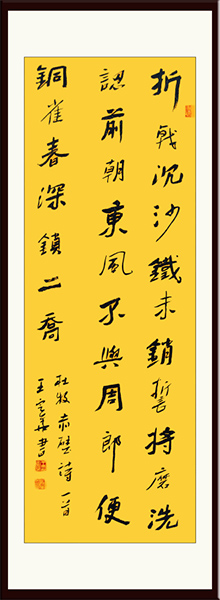 折戟沉沙鐵未銷誓将磨洗
認前朝東風不與周郎便
銅雀春深鎖二喬
杜牧赤壁詩一首